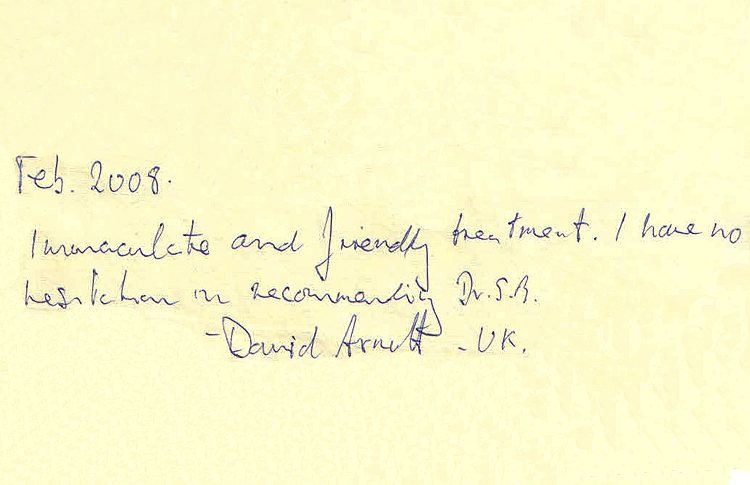 Feb. 2008.
Immaculate and friendly treatment. I have no
hesitation in recommending Dr. S.B.
- David Arnott - UK.